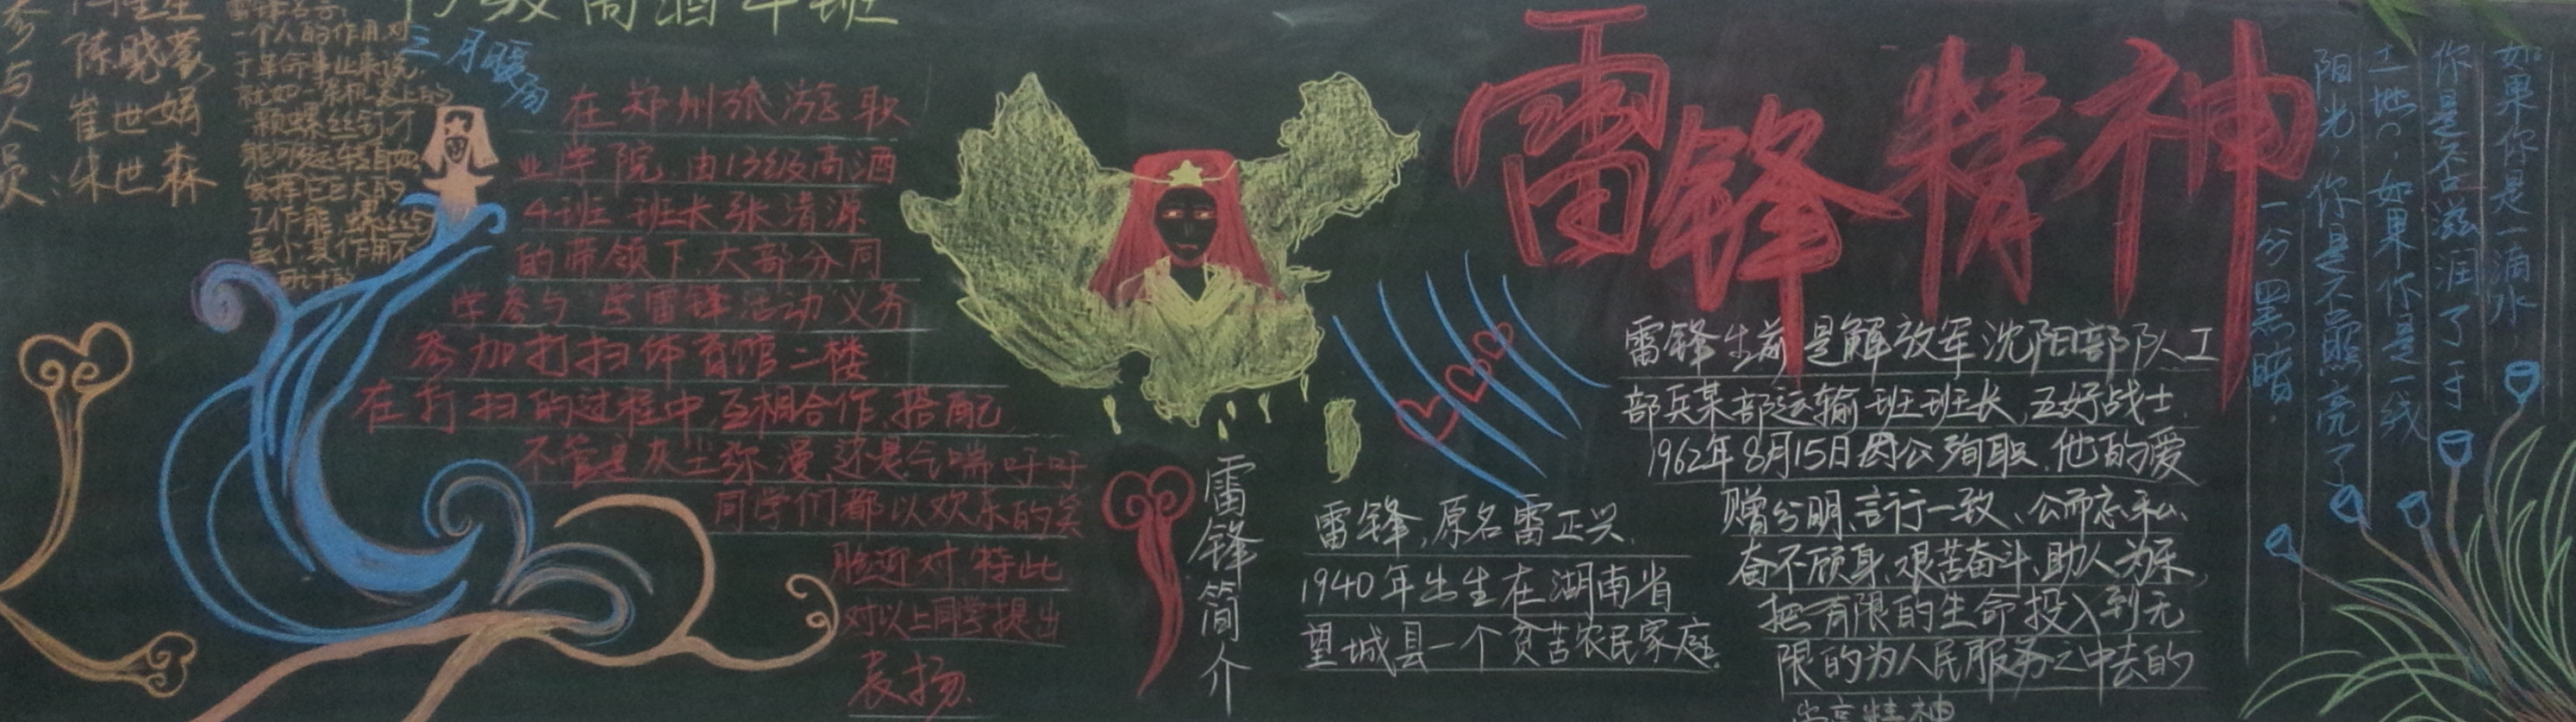 级高酒4班
参与人员:
陈晓蒙
崔世娟
朱世森
一个人的作用,对
于革命事业来说,
就如一架机器上的
一颗螺丝钉,才
工作能,螺丝钉
虽小,其作用不
三月暖阳
在郑州旅游职
业学院,由13级高酒
4班 班长张清源
的带领下,大部分同
学参与 学雷锋活动义务
参加打扫体育馆二楼
在打扫的过程中,互相合作,搭配,
不管是灰尘弥漫,还是气喘吁吁
同学们都以欢乐的笑
脸迎对,特此
对以上同学提出
表扬.
雷锋精神
雷锋简介
雷锋,原名雷正兴.
1940年出生在湖南省
望城县一个贫苦农民家庭.
雷锋生前是解放军沈阳部队工
部兵某部运输班班长,五好战士.
1962年8月15日因公殉职.他的爱
赠分明、言行一致、公而忘私、
奋不顾身、艰苦奋斗、助人为乐,
把有限的生命投入到无
限的为人民服务之中去的
崇高精神
如果你是一滴水,
你是否滋润了一寸
土地?如果你是一线
阳光,你是不照亮了
一分黑暗.